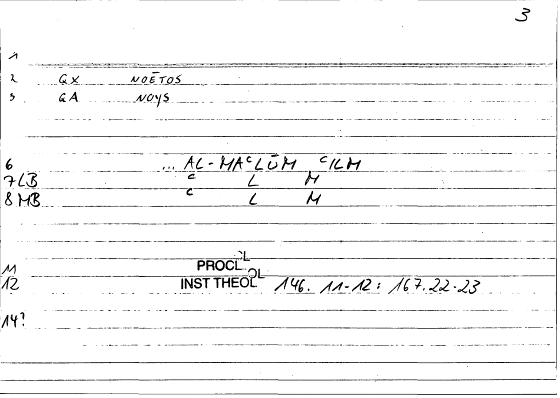 3
1
2 GX NOĒTOS
3 GA NOYS
6 ... AL-MAᶜLŪM ᶜILM
7 LB ᶜ L M
8 MB ᶜ L M
11 PROCL
12 INST THEOL 146. 11-12: 167.22-23
14?